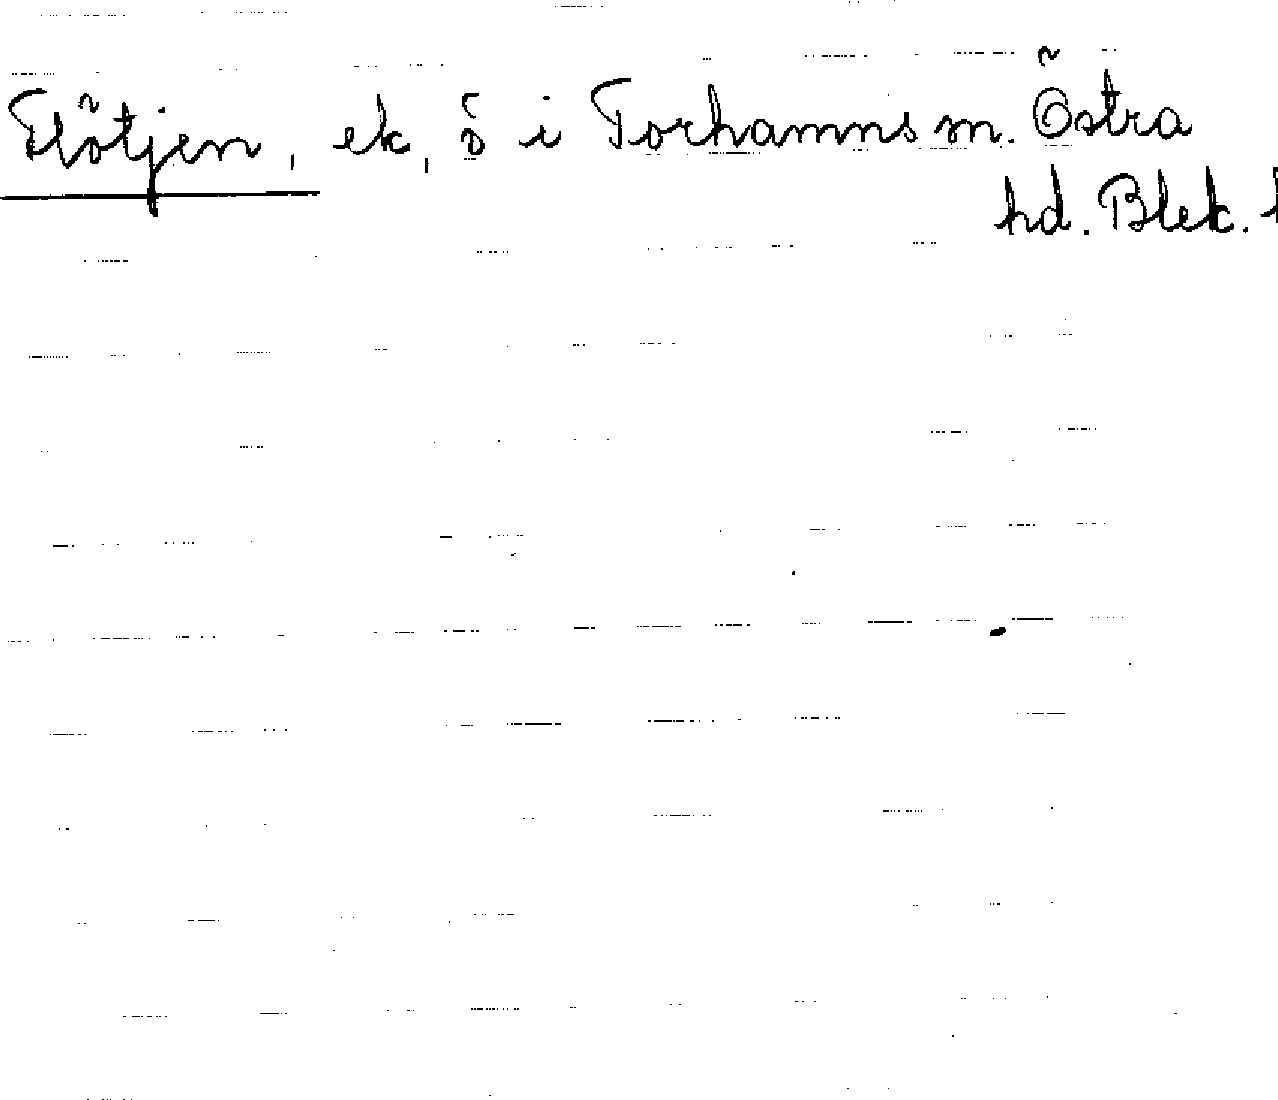 Flötjen, ek, ö i Torhamns sn. Östra
hd. Blek. l